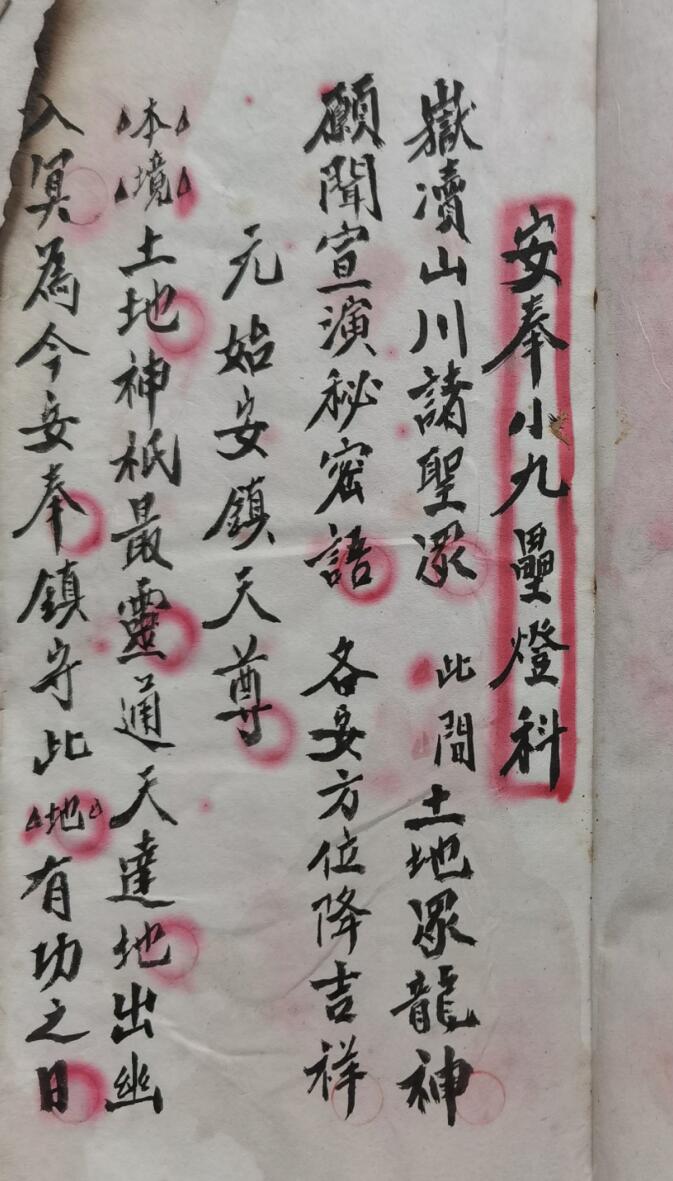 安奉小九壘燈科
嶽瀆山川諸聖眾 此間土地眾龍神
願聞宣演秘密語 各安方位降吉祥
元始安鎮天尊
本境土地神祇最靈通天達地出幽
入冥為今安奉鎮守此地有功之日